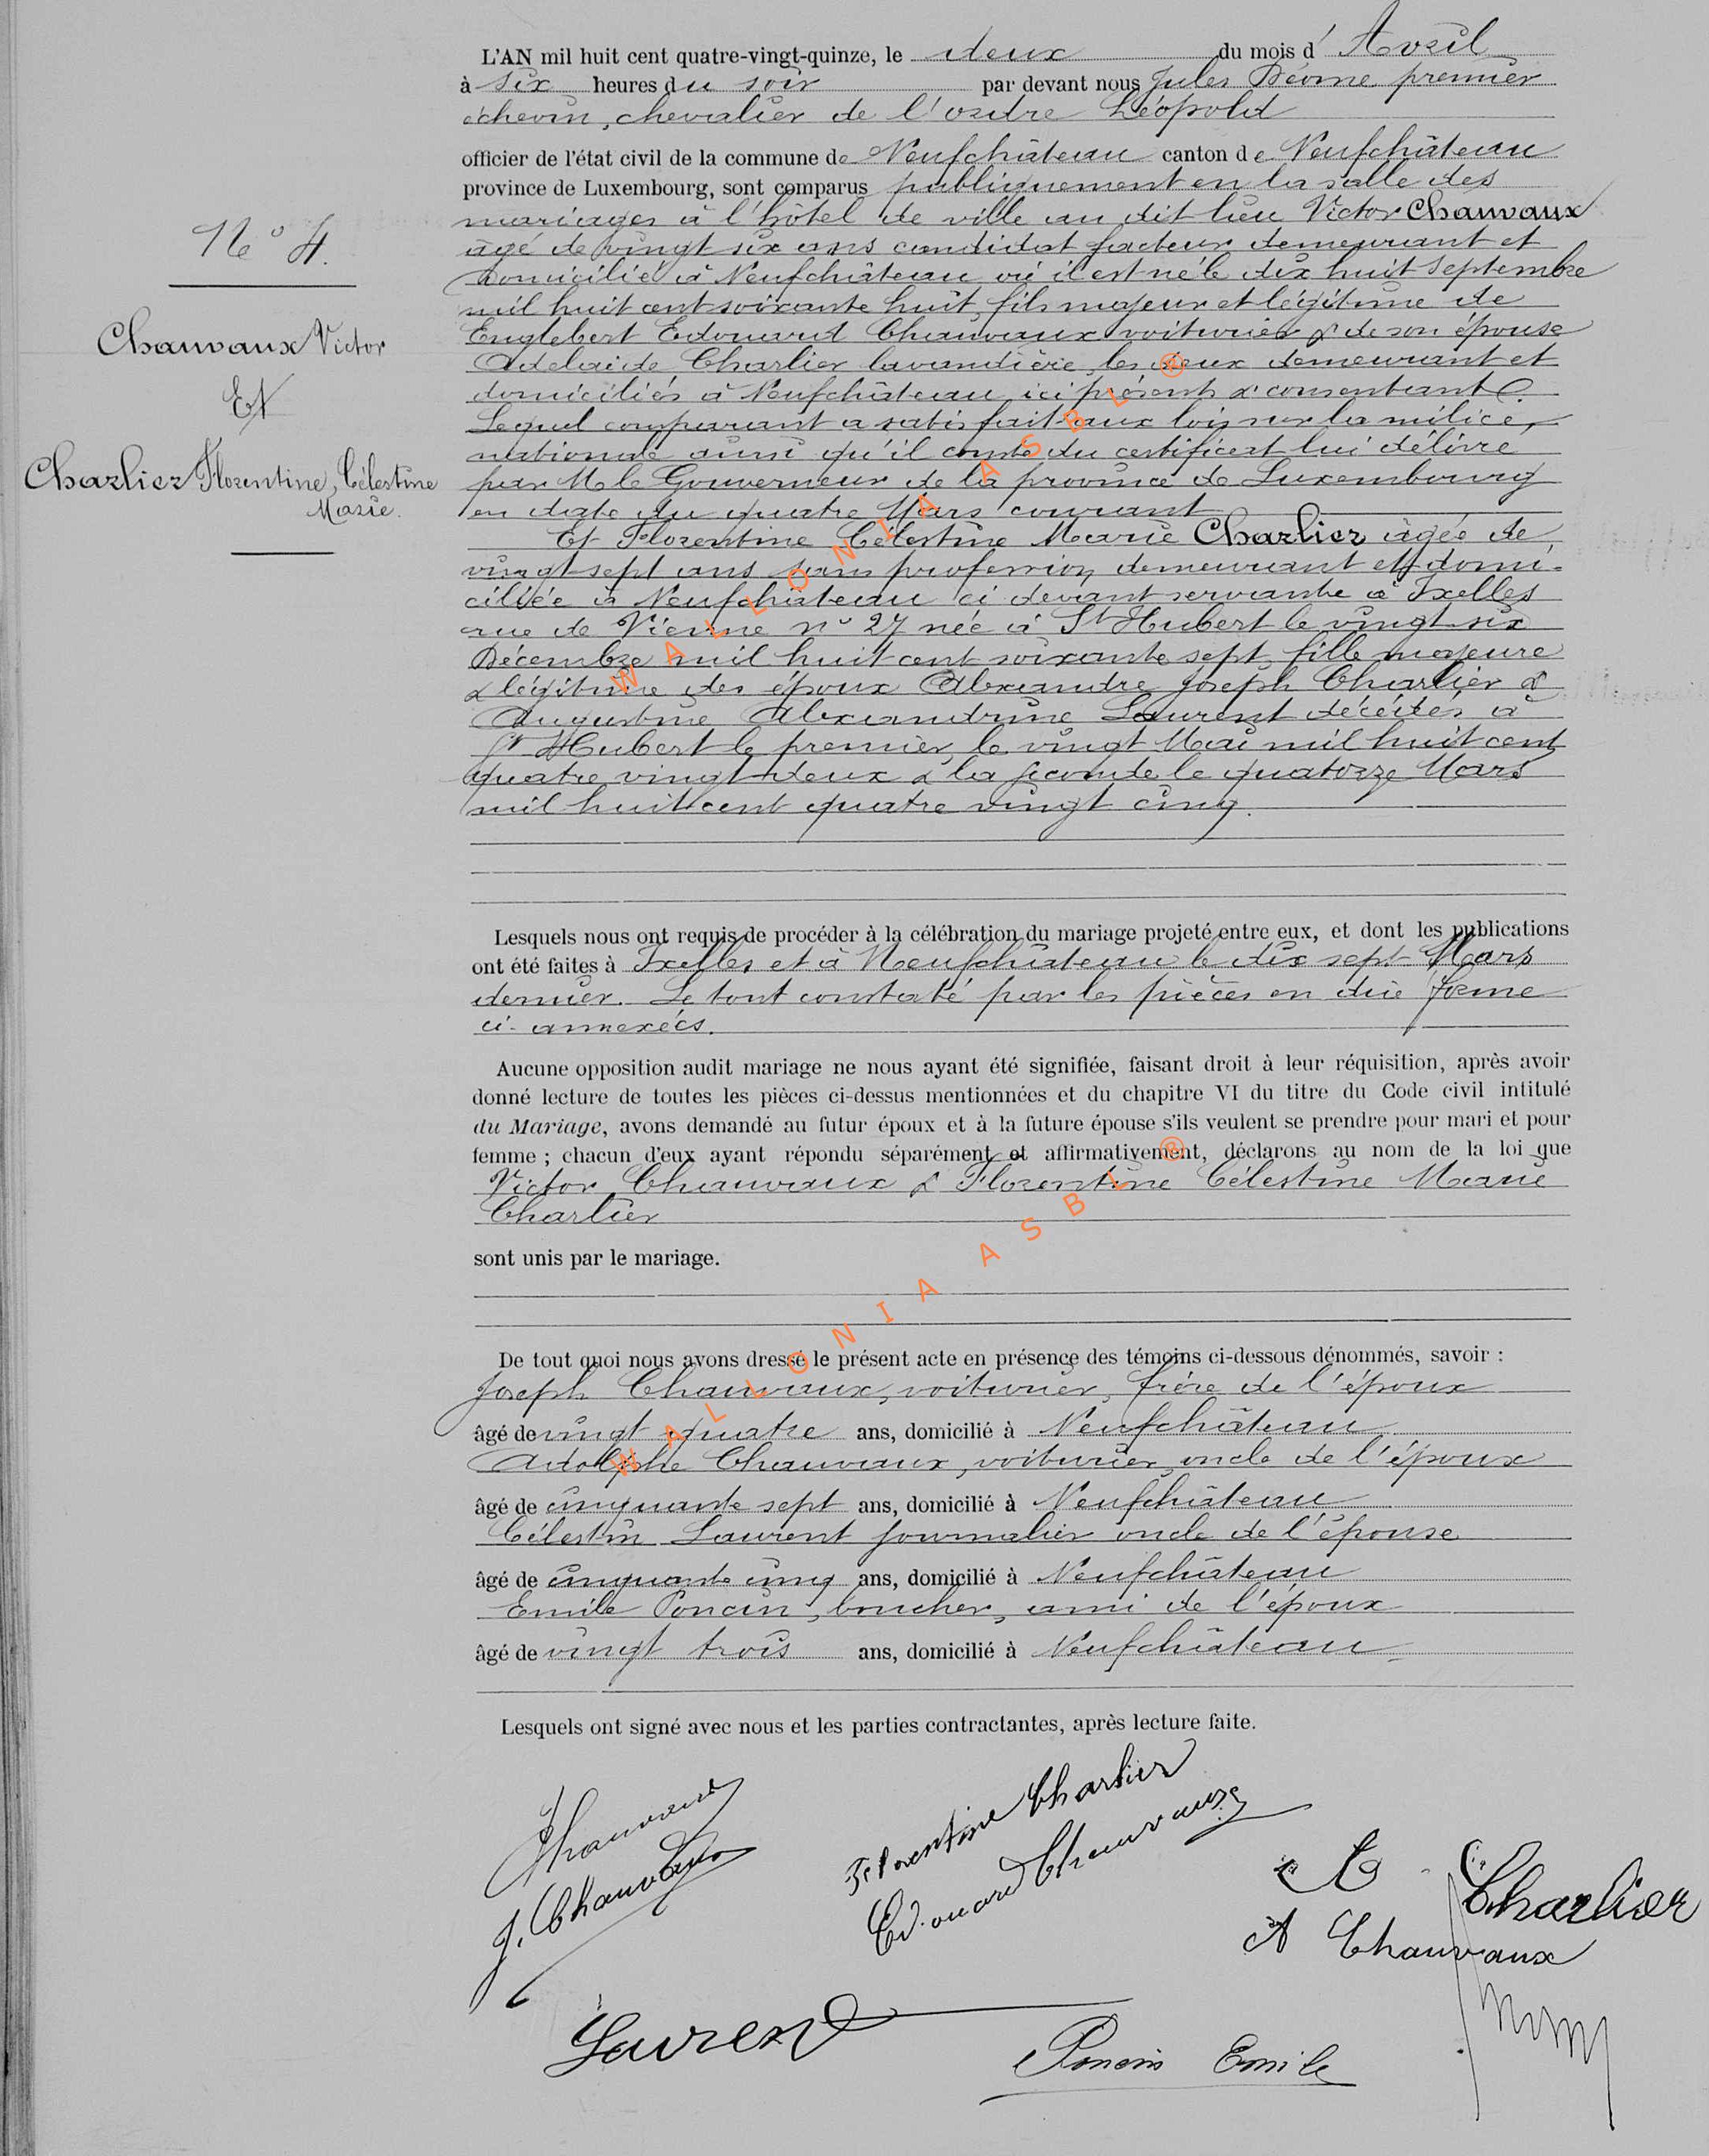 L'AN mil huit cent quatre-vingt-quinze, le deux du mois d' Avril
à six heures du soir par devant nous Jules premier
échevin, chevalier de l'ordre Léopold
officier de l'état civil de la commune de Neufchâteau canton de Neufchâteau
province de Luxembourg, sont comparus publiquement en la salle des
mariages à l'hôtel de ville au dit lieu Victor Chauvaux
âgé de vingt six ans candidat facteur demeurant et
domicilié à Neufchâteau où il est né le dix huit Septembre
mil huit cent soixante huit, fils majeur et légitime de
Englebert Edouard Chauvaux voiturier & de son épouse
Adelaide Charlier lavandière, les deux demeurant et
domiciliés à Neufchâteau, ici présents & consentant
Lequel comparant a satisfait aux lois sur la milice
nationale ainsi qu'il conste du certificat lui délivré
par M le Gouverneur de la province de Luxembourg
en date du quatre Mars courant
N° 4.
Chauvaux Victor
Et
Charlier Florentine, Célestine
Marie.
Et Florentine Célestine Marie Charlier âgée de
vingt-sept ans sans profession, demeurant et domi-
ciliée à Neufchâteau ci devant servante à Ixelles
rue de Vienne n° 27 née à St Hubert le vingt six
Décembre mil huit cent soixante sept, fille majeure
& légitime des époux Alexandre Joseph Charlier &
Augustine Alexandrine Laurent décédés à
St Hubert le premier, le vingt Mai mil huit cent
quatre vingt deux & la seconde le quatorze Mars
mil huit cent quatre vingt cinq.
Lesquels nous ont requis de procéder à la célébration du mariage projeté entre eux, et dont les publications
ont été faites à Ixelles et à Neufchâteau le dix sept Mars
dernier. Le tout constaté par les pièces en due forme
ci-annexées.
Aucune opposition audit mariage ne nous ayant été signifiée, faisant droit à leur réquisition, après avoir
donné lecture de toutes les pièces ci-dessus mentionnées et du chapitre VI du titre du Code civil intitulé
du Mariage, avons demandé au futur époux et à la future épouse s'ils veulent se prendre pour mari et pour
femme ; chacun d'eux ayant répondu séparément et affirmativement, déclarons au nom de la loi que
Victor Chauvaux & Florentine Célestine Marie
Charlier
sont unis par le mariage.
De tout quoi nous avons dressé le présent acte en présence des témoins ci-dessous dénommés, savoir :
Joseph Chauvaux, voiturier, frère de l'époux
âgé de vingt quatre ans, domicilié à Neufchâteau
Adolphe Chauvaux, voiturier, oncle de l'époux
âgé de cinquante sept ans, domicilié à Neufchâteau
Célestin Laurent journalier oncle de l'épouse
âgé de cinquante cinq ans, domicilié à Neufchâteau
Emile Poncin, boucher, ami de l'époux
âgé de vingt trois ans, domicilié à Neufchâteau
Lesquels ont signé avec nous et les parties contractantes, après lecture faite.
Florentine Charlier
J. Chauvaux
Edouard Chauvaux
Charlier
A Chauvaux
Laurent
Poncin Emile
WALLONIA ASBL ®
WALLONIA ASBL ®